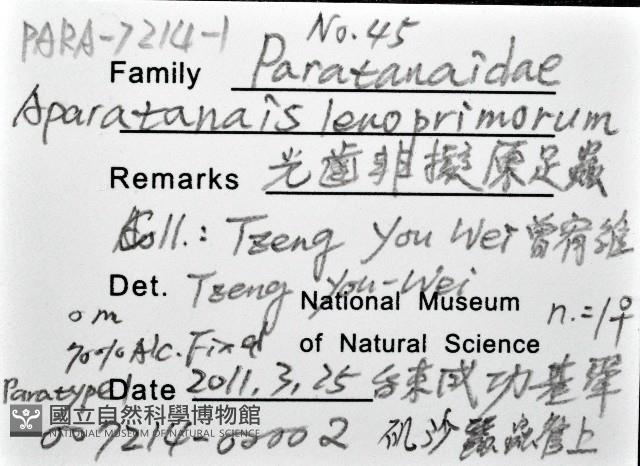 PARA-7214-1
No. 45
Family Paratanaidae
Aparatanais lenoprimorum
Remarks 光齒非擬原足蟲
Coll.: Tzeng You Wei 曾宥維
Det. Tzeng You-Wei
National Museum
of Natural Science
n.=1♀
0 m
70% Alc. Fixed
Paratype 1
Date 2011.3.25 台東成功基翬
國立自然科學博物館
NATIONAL MUSEUM OF NATURAL SCIENCE
007214-00002 矶沙蠶蟲管上